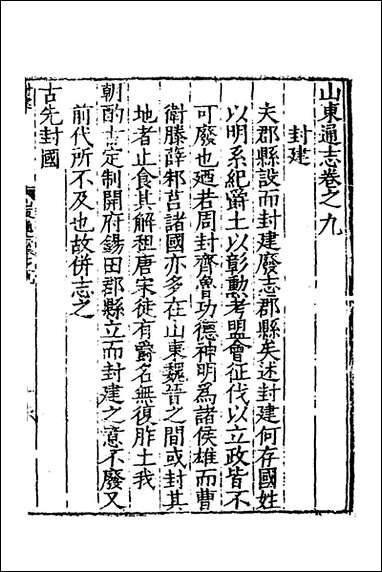 山東通志卷之九
封建
夫郡縣設而封建廢志郡縣矣述封建何存國姓
以明系紀爵土以彰勳考盟會征伐以立政皆不
可廢也廼若周封齊魯功德神明為諸侯雄而曹
衛滕薛邾莒諸國亦多在山東魏晉之間或封其
地者止食其解租唐宋徒有爵名無復胙土我
朝酌古定制開府錫田郡縣立而封建之意不廢又
前代所不及也故併志之
古先封國